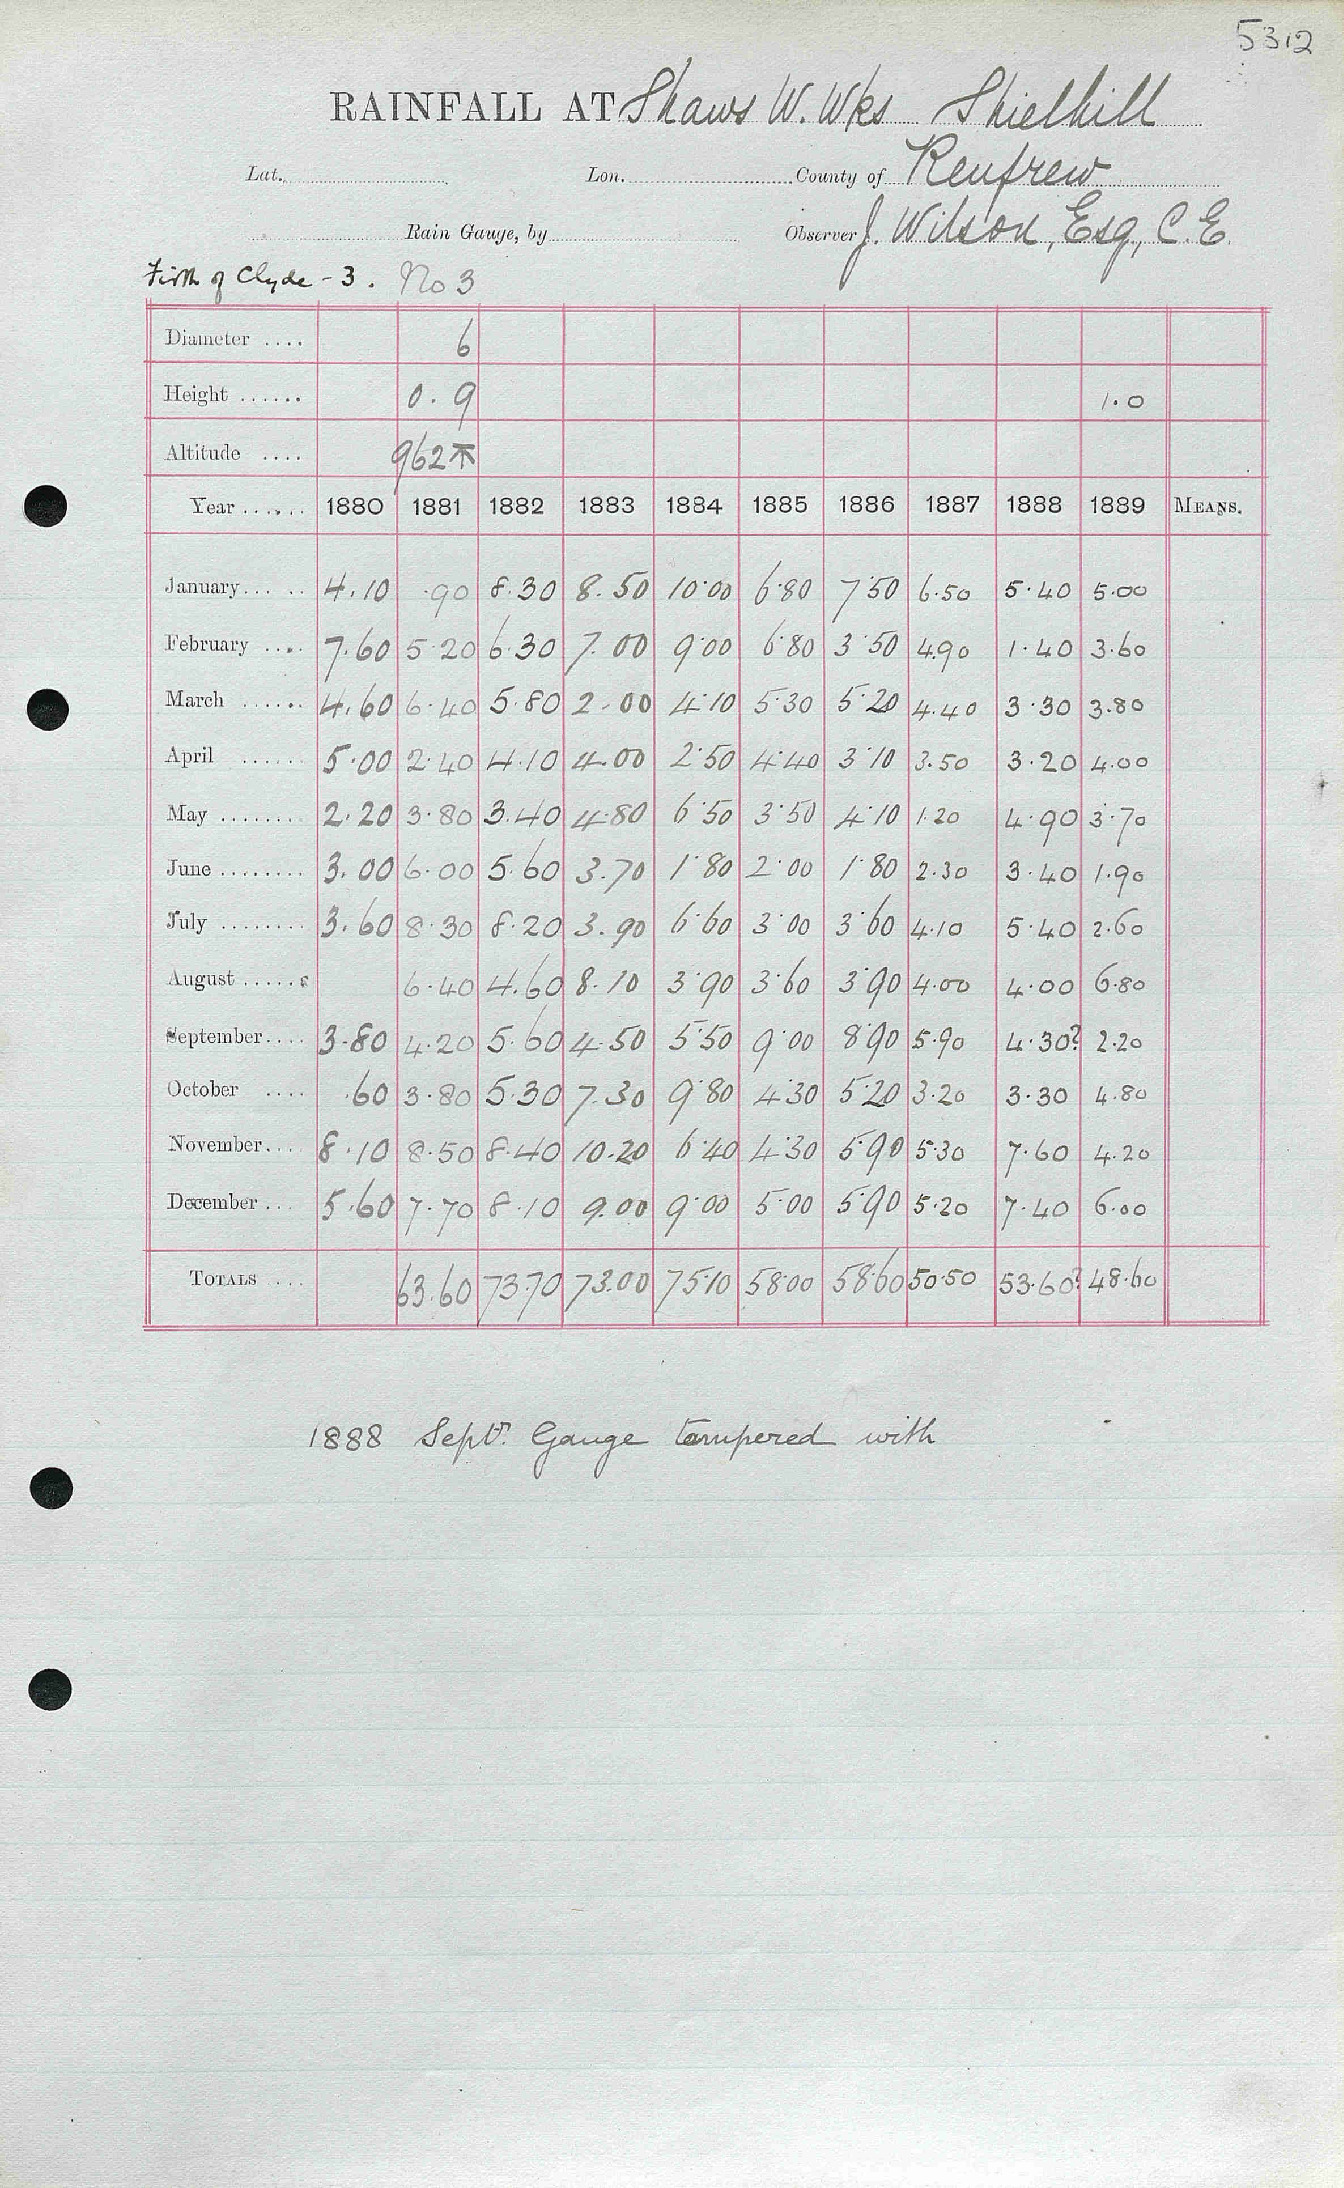 5312
RAINFALL AT Shaws W. Wks Shielhill
Lat. Lon. County of Renfrew
Rain Gauge, by Observer J. Wilson, Esq, C.E
Firth of Clyde - 3. No 3
Diameter .... 6
Height ...... 0.9 1.0
Altitude .... 962
Year ...... 1880 1881 1882 1883 1884 1885 1886 1887 1888 1889 MEANS.
January... .. 4.10 .90 8.30 8.50 10.00 6.80 7.50 6.50 5.40 5.00
February .... 7.60 5.20 6.30 7.00 9.00 6.80 3.50 4.90 1.40 3.60
March ...... 4.60 6.40 5.80 2.00 4.10 5.30 5.20 4.40 3.30 3.80
April ...... 5.00 2.40 4.10 4.00 2.50 4.40 3.10 3.50 3.20 4.00
May ........ 2.20 3.80 3.40 4.80 6.50 3.50 4.10 1.20 4.90 3.70
June ........ 3.00 6.00 5.60 3.70 1.80 2.00 1.80 2.30 3.40 1.90
July ........ 3.60 8.30 8.20 3.90 6.60 3.00 3.60 4.10 5.40 2.60
August ...... 6.40 4.60 8.10 3.90 3.60 3.90 4.00 4.00 6.80
September.... 3.80 4.20 5.60 4.50 5.50 9.00 8.90 5.90 4.30? 2.20
October .... .60 3.80 5.30 7.30 9.80 4.30 5.20 3.20 3.30 4.80
November.... 8.10 8.50 8.40 10.20 6.40 4.30 5.90 5.30 7.60 4.20
December ... 5.60 7.70 8.10 9.00 9.00 5.00 5.90 5.20 7.40 6.00
TOTALS ... 63.60 73.70 73.00 75.10 58.00 58.60 50.50 53.60? 48.60
1888 Septr. Gauge tampered with